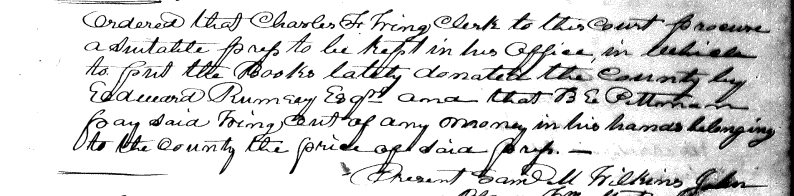 Ordered that Charles F. Wing Clerk to this Court procure
a Suitable press to be kept in his Office, in which
to put the Books lately donated the County by
Eedward Rumsey Esqr. and that B E Pittman
pay said Wing out of any money in his hands belonging
to the County the price of said press. —
Present Saml M Wilkins John